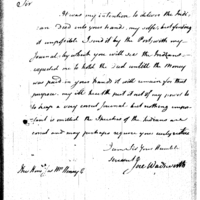 Sir
It was my intention to deliver the Indian
Deed into your hand, my self, but finding
it impossible I send it by the Post with my
Journal by which you will see the Indians
requested me to hold the Deed untill the money
was paid in your hands it will remain for that
purpose, my ill health put it out of my power to
keep a very correct Journal but nothing important
is omitted the Speeches of the Indians are
correct and may perhaps require your
I am Sir Your Humble
Servant
Jere Wadsworth
Hon